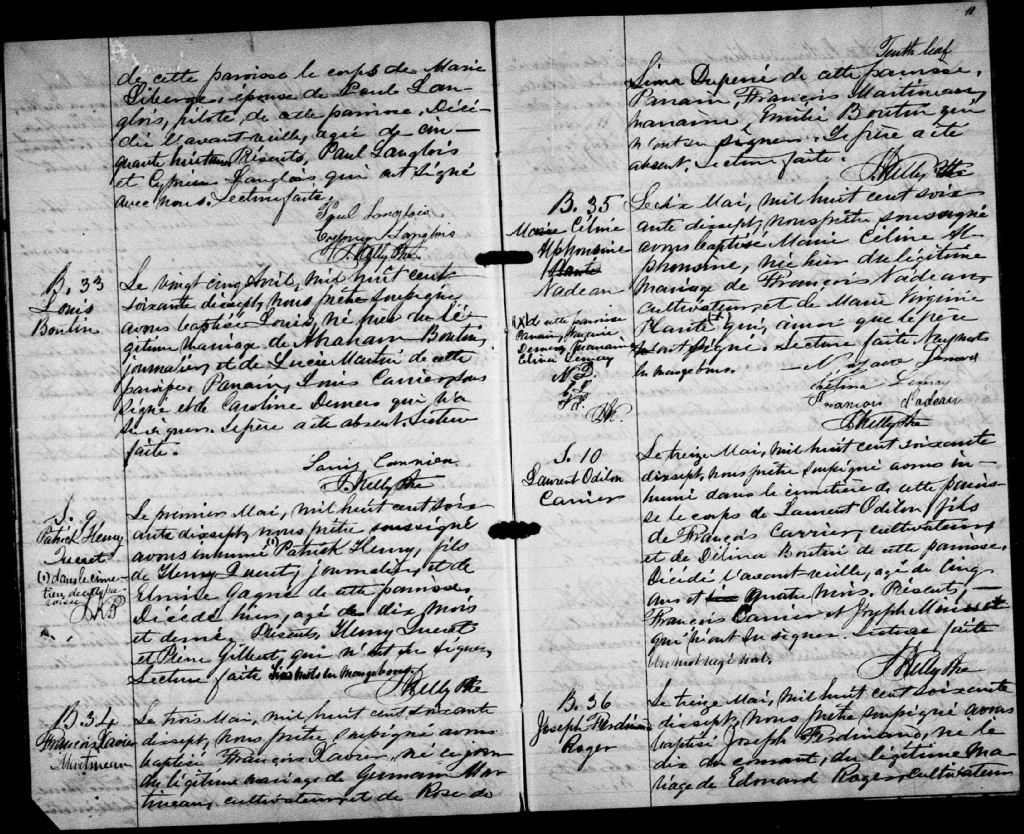 de cette paroisse le corps de Marie
Liberge, épouse de Paul Lan-
glois, pilote, de cette paroisse, Décé-
dée l'avant veille, agée de cin-
quante huit ans. Présents, Paul Langlois
et Cyprien Langlois qui ont signé
avec nous. Lecture faite.
Paul Langlois
Cyprien Langlois
J. Kelly Ptre
B. 33
Louis
Boutin
Le vingt cinq Avril, mil huit cent
soixante dixsept, nous prêtre soussigné
avons baptisé Louis, né hier du lé-
gitime mariage de Abraham Boutin,
journalier, et de Lucie Martin de cette
paroisse. Parrain, Louis Carrier, sous
signé et de Caroline Demers qui n'a
su signer. Le père a été absent. Lecture
faite.
Louis Carrier
J. Kelly Ptre
S. 9
Patrick Henry
Ducet
(1) dans le cime-
tière de cette pa-
roisse
J.K.P
Le premier Mai, mil huit cent soix-
ante dixsept, nous prêtre soussigné
avons inhumé (1) Patrick Henry, fils
de Henry Ducet, journalier, et de
Emilie Gagné de cette paroisse,
Décédé hier, agé de dix mois
et demi. Présents, Henry Ducet
et Pierre Gilbert, qui n'ont su signer,
Lecture faite mots en marge bons.
J Kelly Ptre
B. 34
François Xavier
Martineau
Le trois Mai, mil huit cent soixante
dixsept, nous prêtre, soussigné avons
baptisé François Xavier, né ce jour
du légitime mariage de Germain Mar
tineau, cultivateur, et de Rose de
Tenth leaf
Lima Duperré de cette paroisse.
Parrain, François Martineau,
marraine, Emilie Boutin qui
n'ont su signer. Le père a été
absent. Lecture faite.
J. Kelly Ptre
B. 35
Marie Céline
Alphonsine
Plante
Nadeau
(1) de cette paroisse
Parrain,
Demers, marraine
Célina Lemay
N.D.
F.
J.K.
Le six Mai, mil huit cent soix
ante dixsept, nous prêtre soussigné
avons baptisé Marie Céline Al
phonsine, née hier du légitime
mariage de François Nadeau,
cultivateur, et de Marie Virginie
Plante (1) qui, ainsi que le père
ont signé. Lecture faite. mots
en marge bons.
Célina Lemay
François Nadeau
J Kelly Ptre
S. 10
Laurent Odilon
Carrier
Le treize Mai, mil huit cent soixante
dixsept, nous prêtre soussigné avons in-
humé dans le cimetière de cette parois-
se le corps de Laurent Odilon, fils
de François Carrier, cultivateur,
et de Délina Boutin de cette paroisse.
Décédé l'avant veille, agé de cinq
ans et quatre mois. Présents,
François Carrier et Joseph
qui n'ont su signer. Lecture faite
Un mot rayé nul.
J Kelly Ptre
B. 36
Joseph Ferdinand
Roger
Le treize Mai, mil huit cent soixante
dixsept, nous prêtre soussigné avons
baptisé Joseph Ferdinand, né le
dix du courant, du légitime ma-
riage de Edouard Roger, cultivateur